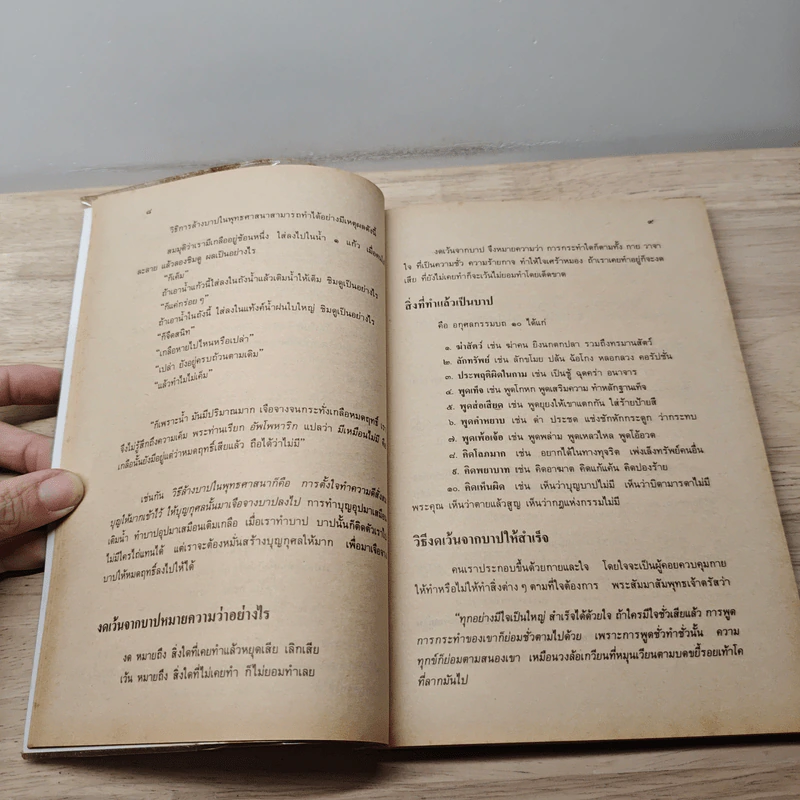 ๘
วิธีการล้างบาปในพุทธศาสนาสามารถทำได้อย่างมีเหตุผลดังนี้
สมมุติว่าเรามีเกลืออยู่ช้อนหนึ่ง ใส่ลงไปในน้ำ ๑ แก้ว เมื่อ
ละลาย แล้วลองชิมดู ผลเป็นอย่างไร
"ก็เค็ม"
ถ้าเอาน้ำแก้วนี้ใส่ลงในถังน้ำแล้วเติมน้ำให้เต็ม ชิมดูเป็นอย่างไร
"ก็แค่กร่อย ๆ"
ถ้าเอาน้ำในถังนี้ ใส่ลงในแท้งค์น้ำฝนใบใหญ่ ชิมดูเป็นอย่างไร
"ก็จืดสนิท"
"เกลือหายไปไหนหรือเปล่า"
"เปล่า ยังอยู่ครบถ้วนตามเดิม"
"แล้วทำไมไม่เค็ม"
"ก็เพราะน้ำ มันมีปริมาณมาก เจือจางจนกระทั่งเกลือหมดฤทธิ์
จึงไม่รู้สึกถึงความเค็ม พระท่านเรียก อัพโพหาริก แปลว่า มีเหมือนไม่มี
เกลือนั้นยังมีอยู่แต่ว่าหมดฤทธิ์เสียแล้ว ถือได้ว่าไม่มี"
เช่นกัน วิธีล้างบาปในพุทธศาสนาก็คือ การตั้งใจทำความดีสั่งสม
บุญให้มากเข้าไว้ ให้บุญกุศลนั้นมาเจือจางบาปลงไป การทำบุญอุปมาเสมือน
เติมน้ำ ทำบาปอุปมาเสมือนเติมเกลือ เมื่อเราทำบาป บาปนั้นก็ติดตัวเรา
ไม่มีใครไถ่แทนได้ แต่เราจะต้องหมั่นสร้างบุญกุศลให้มาก เพื่อมาเจือจาง
บาปให้หมดฤทธิ์ลงไปให้ได้
งดเว้นจากบาปหมายความว่าอย่างไร
งด หมายถึง สิ่งใดที่เคยทำแล้วหยุดเสีย เลิกเสีย
เว้น หมายถึง สิ่งใดที่ไม่เคยทำ ก็ไม่ยอมทำเลย
๙
งดเว้นจากบาป จึงหมายความว่า การกระทำใดก็ตามทั้ง กาย วาจา
ใจ ที่เป็นความชั่ว ความร้ายกาจ ทำให้ใจเศร้าหมอง ถ้าเราเคยทำอยู่ก็จะงด
เสีย ที่ยังไม่เคยทำก็จะเว้นไม่ยอมทำโดยเด็ดขาด
สิ่งที่ทำแล้วเป็นบาป
คือ อกุศลกรรมบถ ๑๐ ได้แก่
๑. ฆ่าสัตว์ เช่น ฆ่าคน ยิงนกตกปลา รวมถึงทรมานสัตว์
๒. ลักทรัพย์ เช่น ลักขโมย ปล้น ฉ้อโกง หลอกลวง คอรัปชั่น
๓. ประพฤติผิดในกาม เช่น เป็นชู้ ฉุดคร่า อนาจาร
๔. พูดเท็จ เช่น พูดโกหก พูดเสริมความ ทำหลักฐานเท็จ
๕. พูดส่อเสียด เช่น พูดยุยงให้เขาแตกกัน ใส่ร้ายป้ายสี
๖. พูดคำหยาบ เช่น ด่า ประชด แช่งชักหักกระดูก ว่ากระทบ
๗. พูดเพ้อเจ้อ เช่น พูดพล่าม พูดเหลวไหล พูดโอ้อวด
๘. คิดโลภมาก เช่น อยากได้ในทางทุจริต เพ่งเล็งทรัพย์คนอื่น
๙. คิดพยาบาท เช่น คิดอาฆาต คิดแก้แค้น คิดปองร้าย
๑๐. คิดเห็นผิด เช่น เห็นว่าบุญบาปไม่มี เห็นว่าบิดามารดาไม่มี
พระคุณ เห็นว่าตายแล้วสูญ เห็นว่ากฎแห่งกรรมไม่มี
วิธีงดเว้นจากบาปให้สำเร็จ
คนเราประกอบขึ้นด้วยกายและใจ โดยใจจะเป็นผู้คอยควบคุมกาย
ให้ทำหรือไม่ให้ทำสิ่งต่าง ๆ ตามที่ใจต้องการ พระสัมมาสัมพุทธเจ้าตรัสว่า
"ทุกอย่างมีใจเป็นใหญ่ สำเร็จได้ด้วยใจ ถ้าใครมีใจชั่วเสียแล้ว การพูด
การกระทำของเขาก็ย่อมชั่วตามไปด้วย เพราะการพูดชั่วทำชั่วนั้น ความ
ทุกข์ก็ย่อมตามสนองเขา เหมือนวงล้อเกวียนที่หมุนเวียนตามบดขยี้รอยเท้าโค
ที่ลากมันไป